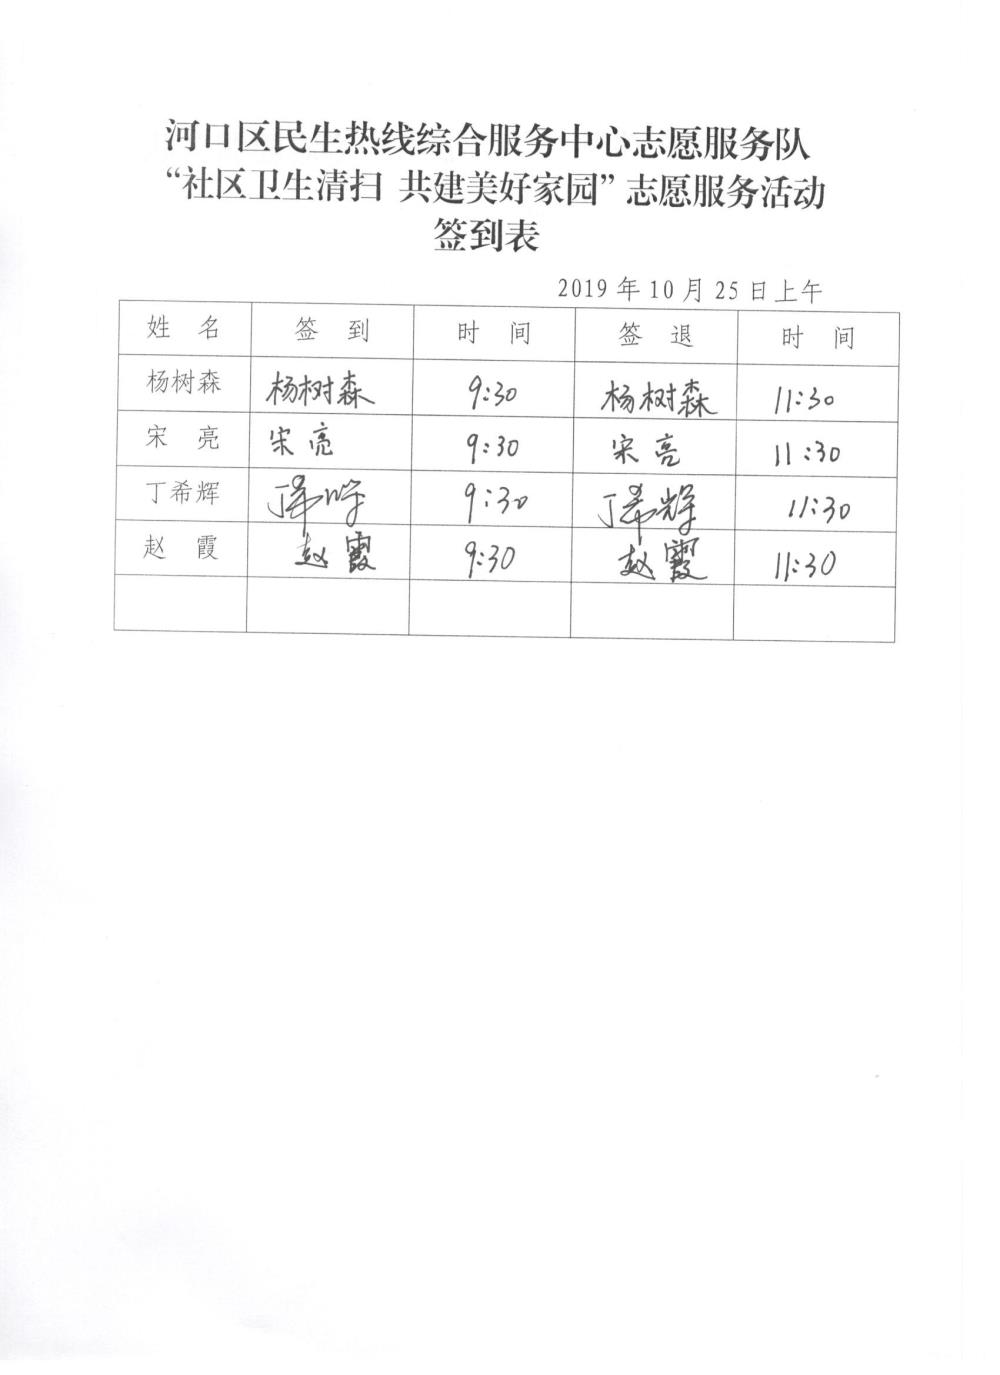 河口区民生热线综合服务中心志愿服务队
“社区卫生清扫 共建美好家园”志愿服务活动
签到表
2019年10月25日上午
姓 名 签 到 时 间 签 退 时 间
杨树森 杨树森 9:30 杨树森 11:30
宋 亮 宋亮 9:30 宋亮 11:30
丁希辉 丁希辉 9:30 丁希辉 11:30
赵 霞 赵霞 9:30 赵霞 11:30